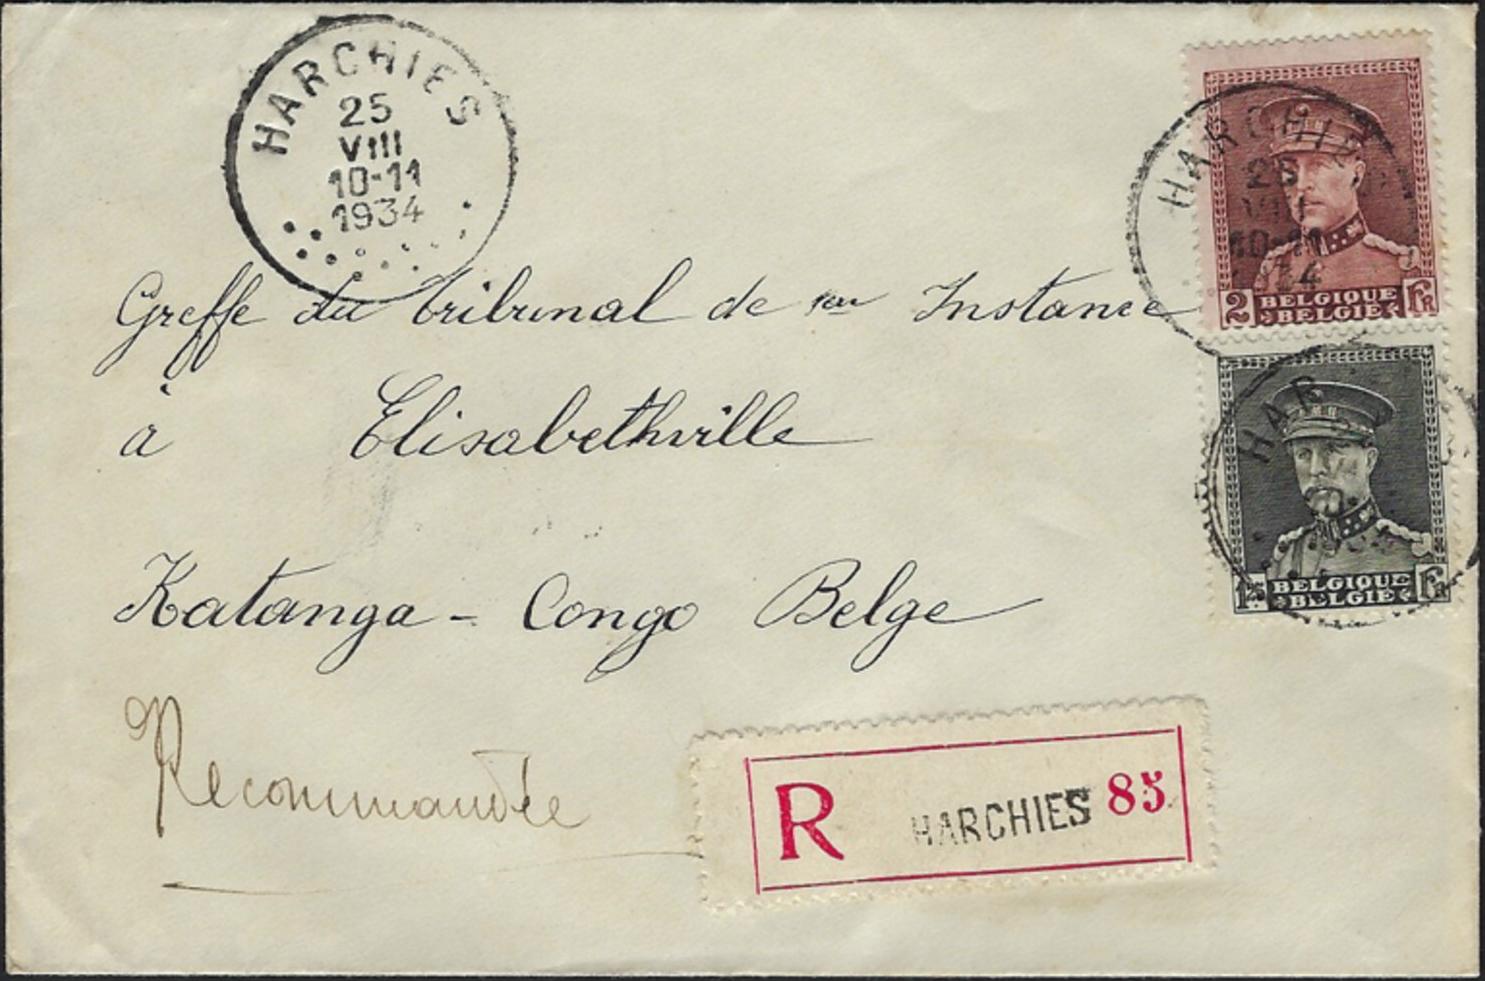 HARCHIES
25
VIII
10-11
1934
HARCHIE
25
VIII
10-11
1934
2 BELGIQUE FR
BELGIË
HAR
BELGIQUE FR
BELGIË
Greffe du tribunal de 1ère Instance
à Elisabethville
Katanga - Congo Belge
Recommandée
R HARCHIES 85